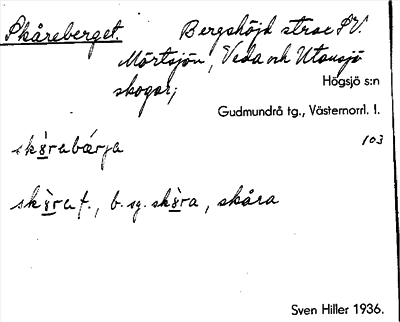 Skåreberget. Bergshöjd strax SV.
Mörtsjön, Veda och Utansjö
skogar;
Högsjö s:n
Gudmundrå tg., Västernorrl. l.
103
skɤ̀rabárja
skɤ̀ra f., b. sg. skɤ̀ra, skåra
Sven Hiller 1936.